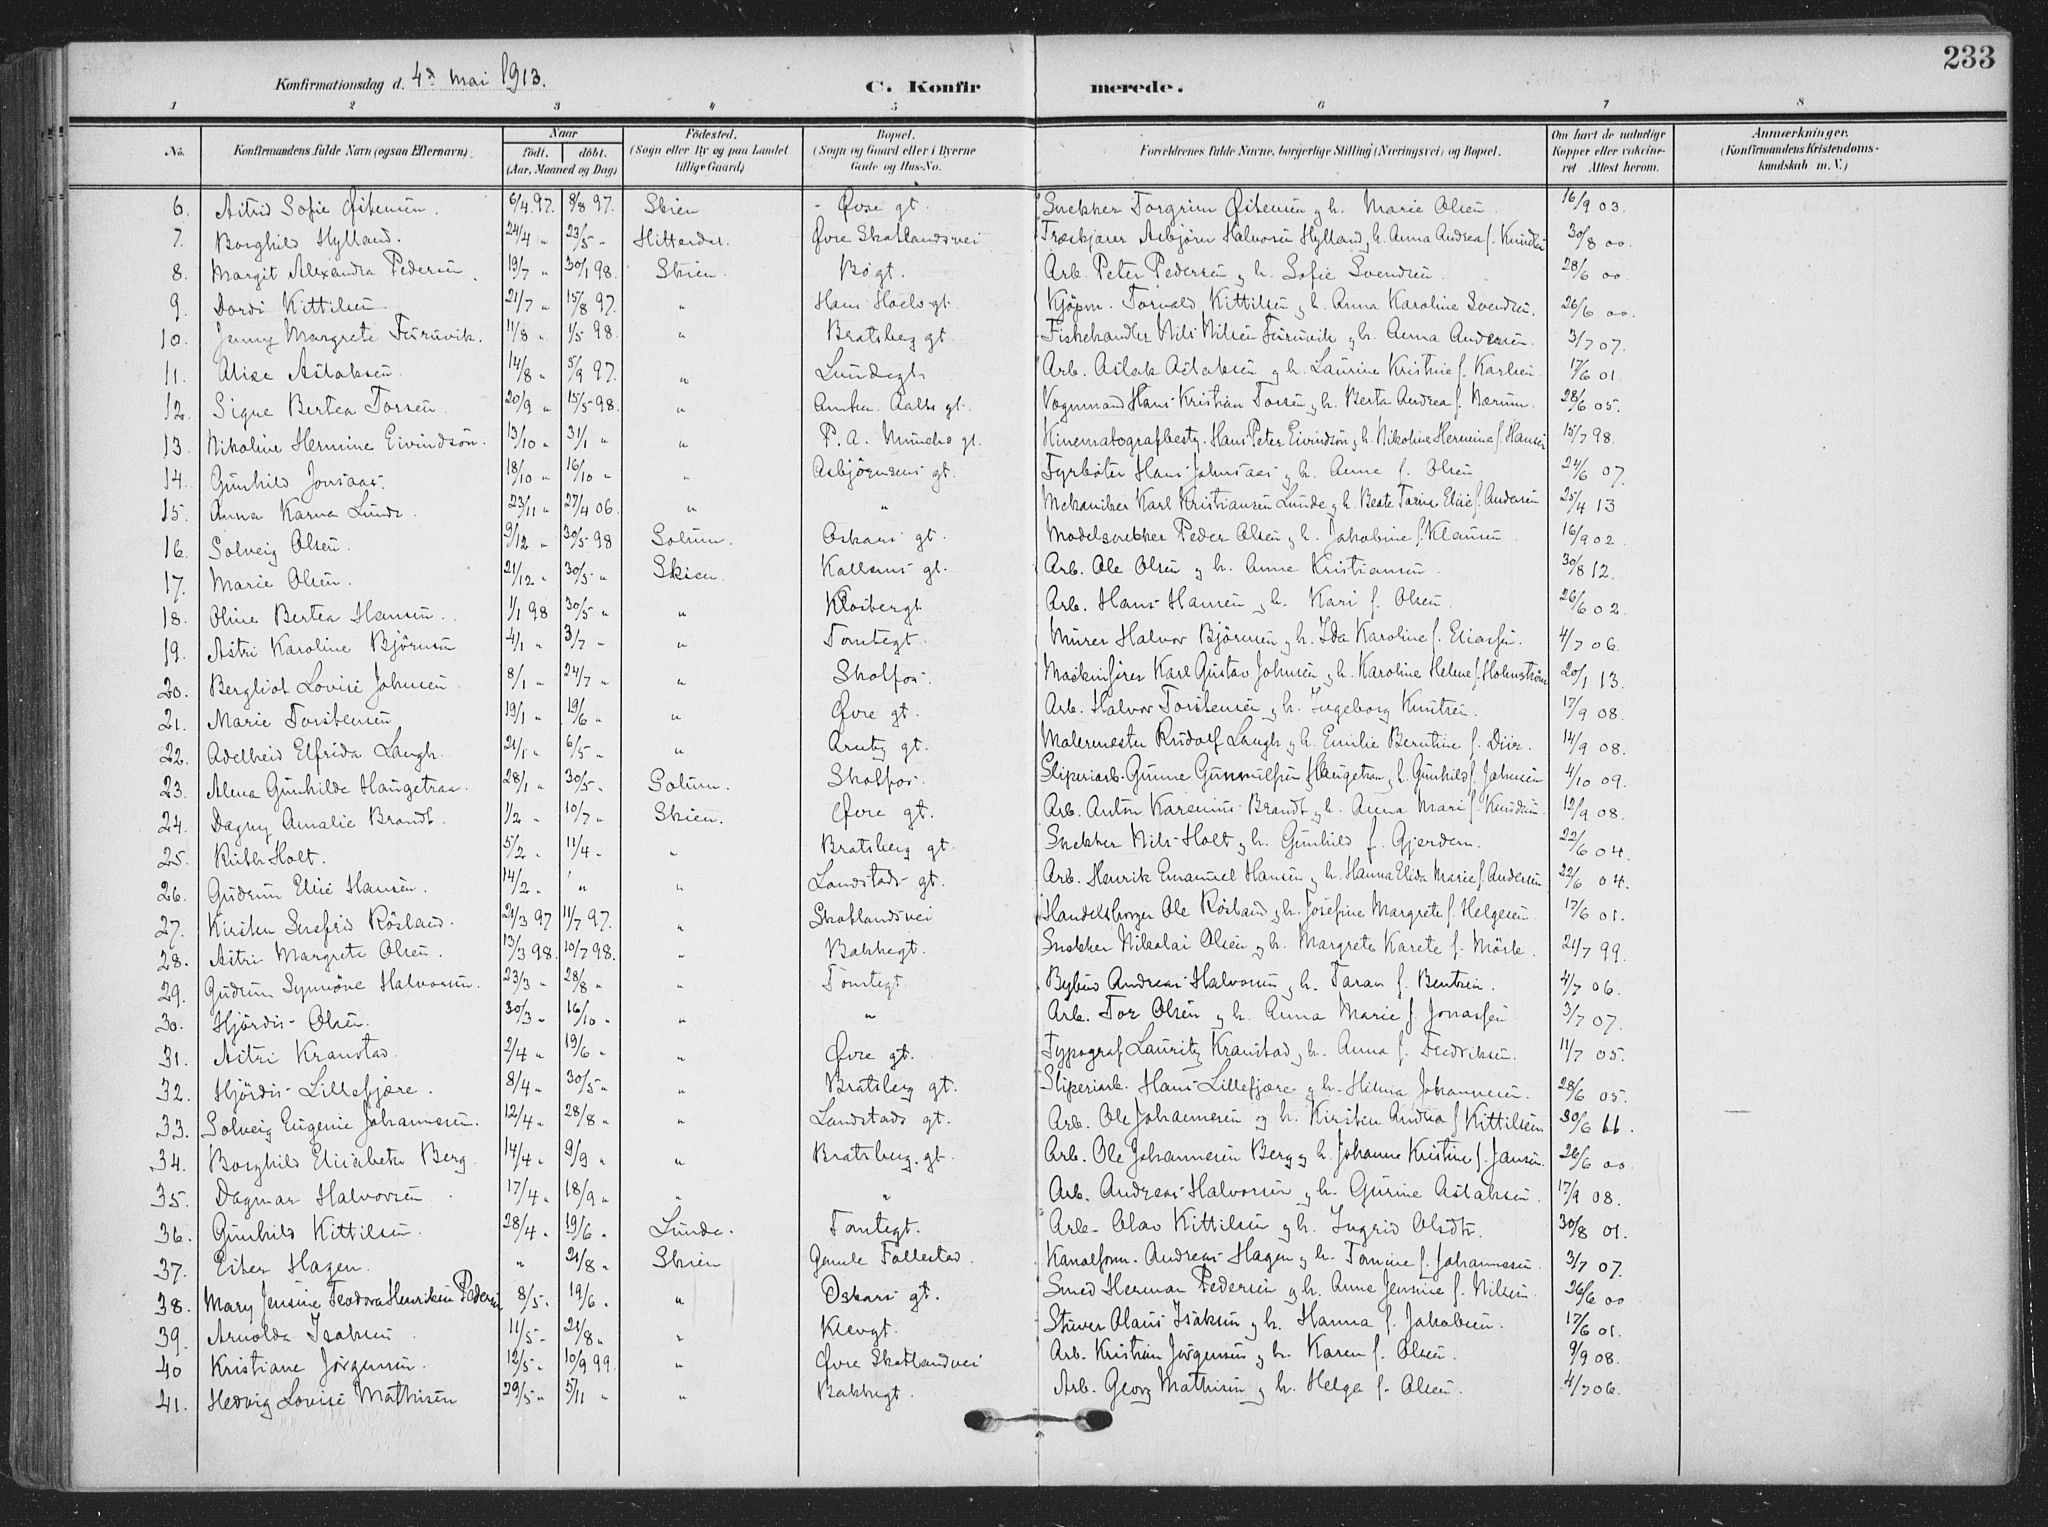 233
Konfirmationsdag d. 4de mai 1913. C. Konfirmerede.
1 2 3 4 5 6 7 8
No. Konfirmandens fulde Navn (ogsaa Efternavn). Naar født. døbt. (Aar, Maaned og Dag) Födested. (Sogn eller By og paa Landet tillige Gaard) Bopæl. (Sogn og Gaard eller i Byerne Gade og Hus-No. Forældrenes fulde Navne, borgerlige Stilling (Næringsvei) og Bopæl. Om havt de naturlige Kopper eller vakcineret Attest herom. Anmærkninger. (Konfirmandens Kristendomskundskab m. V.)
6. Astrid Sofie 6/4 97. 8/8 97. Skien Øvre gt. Snekker Torgrim g h. Marie Olsen 16/9 03.
7. Borghild Hylland. 24/4 " 23/5 " Hitterdal. Øvre Skotlandsvei Træskjærer Asbjørn Halvorsen Hylland g h. Anna Andrea f. Knudsen 30/8 00.
8. Margit Alexandra Pedersen 19/7 " 30/1 98. Skien. Bøgt. Arb. Peter Pedersen g h. Sofie Svendsen. 28/6 00.
9. Dordi Kittilsen 21/7 " 15/8 97. " Hans Hoels gt. Kjøpm. Torvald Kittilsen g h. Anna Karoline Svendsen. 26/6 00.
10. Jenny Margrete Furuvik. 11/8 " 1/5 98. " Bratsberg gt. Fiskehandler Nils Nilsen Furuvik g h. Anna Andersen. 3/7 07.
11. Alise Aslaksen 14/8 " 5/9 97. " Lundegt. Arb. Aslak Aslaksen g h. Laurine Kristine f. Karlsen. 17/6 01.
12. Signe Bertea Torsen. 20/9 " 15/5 98. " Amtm. Aalls gt. Vognmand Hans Kristian Torsen g h. Berta Andrea f. Nærum. 28/6 05.
13. Nikoline Hermine Eivindsön. 13/10 " 31/1 " " P. A. Munchs gt. Kinematografbesty. Hans Peter Eivindsön g h. Nikoline Hermine f. Hansen 15/7 98.
14. Gunhild Jonsaas. 18/10 " 16/10 " " Asbjörnsens gt. Fyrbøter Hans Johnsaas g h. Anne f. Olsen 24/6 07.
15. Anna Karna Lunde. 23/11 " 27/4 06. " " Mekaniker Karl Kristiansen Lunde g h. Beate Tarine Elise f. Andersen 25/4 13
16. Solveig Olsen. 9/12 " 30/5 98 Solum. Oskars gt. Modelsnekker Peder Olsen g h. Jakobine f. Klausen 16/9 02.
17. Marie Olsen. 21/12 " 30/5 " Skien. Kallerus gt. Arb. Ole Olsen g h. Anne Kristiansen. 30/8 12.
18. Oline Bertea Hansen. 1/1 98 30/5 " " Klosbergt Arb. Hans Hansen g h. Kari f. Olsen. 26/6 02.
19. Astri Karoline Björnsen 4/1 " 3/7 " " Tomtegt. Murer Halvor Björnsen g h. Ida Karoline f. Eliassen. 4/7 06.
20. Bergliot Lovise Johnsen 8/1 " 24/7 " " Skotfos. Maskinfører Karl Gustav Johnsen g h. Karoline Helene f. Holmström 20/1 13.
21. Marie Torstensen 19/1 " 19/6 " " Øvre gt. Arb. Halvor Torstensen g h. Ingeborg Knutsen. 17/9 08.
22. Adelheid Elfrida Laugh. 21/1 " 6/5 " " Arntz gt. Malermester Rudolf Laugh g h. Emilie Berntine f. 14/9 08.
23. Alma Gunhilde Haugetraa. 28/1 " 30/5 " Solum. Skotfos. Sliperiarb. Gunne Gunnulfsen Haugetraa g h. Gunhild f. Johnsen 4/10 09.
24. Dagny Amalie Brandt. 1/2 " 10/7 " Skien. Øvre gt. Arb. Anton Karenius Brandt g h. Anna Mari f. Knudsen 12/9 08.
25. Ruth Holt. 5/2 " 11/4 " " Bratsberg gt. Snekker Nils Holt g h. Gunhild f. Gjerden. 22/6 04.
26. Gudrun Elise Hansen. 14/2 " " " Landstads gt. Arb. Henrik Emanuel Hansen g h. Hanna Elida Marie f. Andersen 22/6 04.
27. Kirsten Snefrid Rösland. 21/3 97 11/7 97. " Skotlandsvei Handelsborger Ole Rösland g h. Josefine Margrete f. Helgesen. 17/6 01.
28. Astri Margrete Olsen. 13/3 98. 10/7 98. " Bakkegt. Snekker Nikolai Olsen g h. Margrete Karete f. Mörk. 21/7 99.
29. Gudrun Synnöve Halvorsen. 23/3 " 28/8 " " Tomtegt. Bybud Andreas Halvorsen g h. Taran f. Bentsen. 4/7 06.
30. Hjördis Olsen. 30/3 " 16/10 " " " Arb. Tor Olsen g h. Anna Marie f. Jonassen 3/7 07.
31. Astri Kranstad. 2/4 " 19/6 " " Øvre gt. Typograf Lauritz Kranstad g h. Anna f. Fredriksen. 11/7 05.
32. Hjördis Lillefjære. 8/4 " 30/5 " " Bratsberg gt. Sliperiarb. Hans Lillefjære g h. Hilma Johannesen. 28/6 05.
33. Solveig Eugenie Johannesen. 12/4 " 28/8 " " Landstads gt. Arb. Ole Johannesen og h. Kirsten Andrea f. Kittilsen 30/6
34. Borghild Elisabeth Berg. 14/4 " 9/9 " " Bratsberg. gt. Arb. Ole Johannesen Berg g h. Johanne Kristine f. Jansen. 26/6 00.
35. Dagmar Halvorsen 17/4 " 18/9 " " " Arb. Andreas Halvorsen g h. Gurine Aslaksen. 17/9 08.
36. Gunhild Kittilsen. 28/4 " 19/6 " Lunde. Tomtegt. Arb. Olav Kittilsen g h. Ingrid Olsdtr. 30/8 01.
37. Ester Hagen. " 21/8 " Skien Gamle Fallestad. Kanalform. Andreas Hagen g h. Tomine f. Johannesen. 3/7 07.
38. Mary Jensine Teodora Henriksen Pedersen. 8/5 " 19/6 " " Oskars gt. Smed Herman Pedersen g h. Anne Jensine f. Nilsen. 26/6 00
39. Arnolda Isaksen 11/5 " 21/8 " " Klevgt. Stuver Olaus Isaksen g h. Hanna f. Jakobsen. 17/6 01.
40 Kristiane Jörgensen. 12/5 " 10/9 99. " Øvre Skotlandvei Arb. Kristian Jørgensen g h. Karen f. Olsen. 9/9 08.
41. Hedvig Lovise Mathisen 29/5 " 5/11 " " Bakkegt. Arb. Georg Mathisen g h. Helga f. Olsen. 4/7 06.